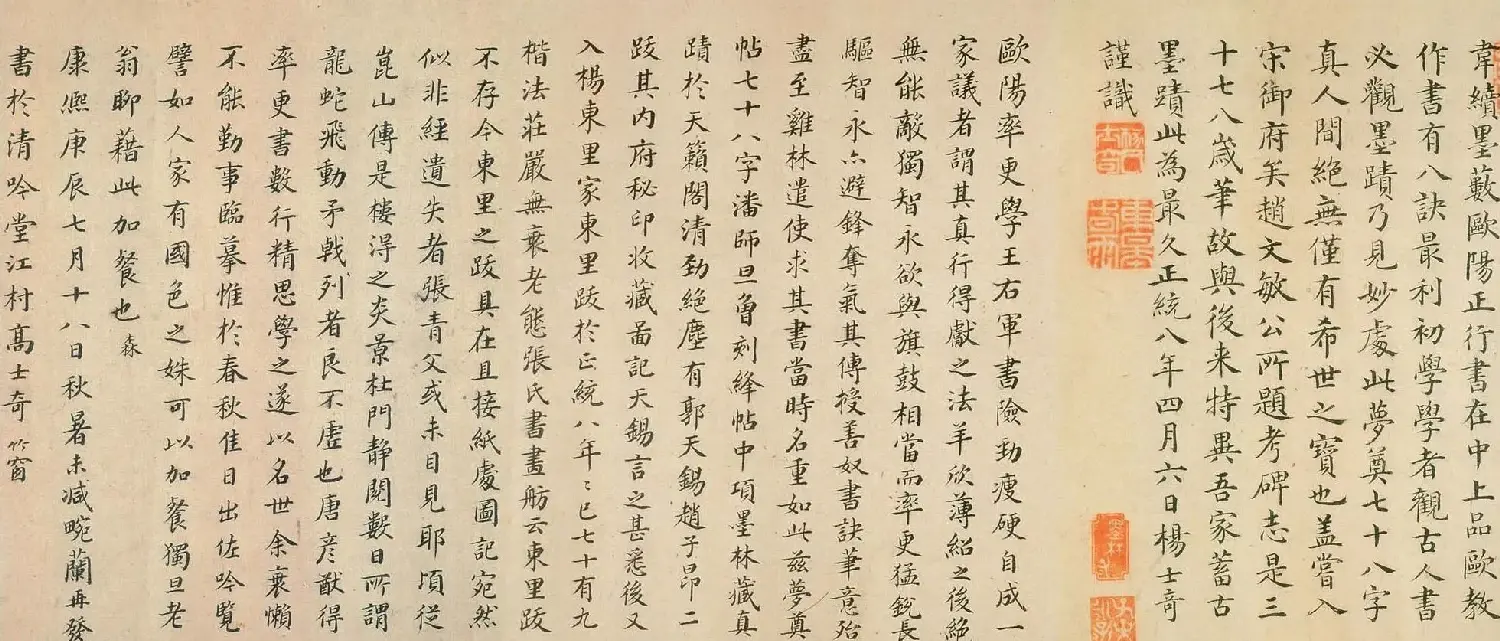 韋續墨藪歐陽正行書在中上品歐教
作書有八訣最利初學學者觀古人書
必觀墨蹟乃見妙處此夢奠七十八字
真人間絕無僅有希世之寶也盖嘗入
宋御府矣趙文敏公所題考碑志是三
十七八歲筆故與後来特異吾家蓄古
墨蹟此為最久正統八年四月六日楊士奇
謹識
歐陽率更學王右軍書險勁瘦硬自成一
家議者謂其真行得獻之法羊欣薄紹之後絕
無能敵獨智永欲與旗鼓相當而率更猛銳長
驅智永亦避鋒奪氣其傳授善奴書訣筆意殆
盡至雞林遣使求其書當時名重如此兹夢奠
帖七十八字潘師旦曾刻絳帖中項墨林藏真
蹟於天籟閣清勁絕塵有郭天錫趙子昂二
跋其内府秘印收藏啚記天錫言之甚悉後又
入楊東里家東里跋於正統八年〻已七十有九
楷法莊嚴無衰老態張氏書畫舫云東里跋
不存今東里之跋具在且接紙處圖記宛然
似非經遺失者張青父或未目見耶頃從
崑山傳是樓得之炎景杜門静閱數日所謂
龍蛇飛動矛戟列者良不虛也唐彦猷得
率更書數行精思學之遂以名世余衰懶
不能勤事臨摹惟於春秋佳日出佐吟覽
譬如人家有國色之姝可以加餐獨旦老
翁聊藉此加餐也森
康熈庚辰七月十八日秋暑未减畹蘭再發
書於清吟堂江村髙士奇 竹窗